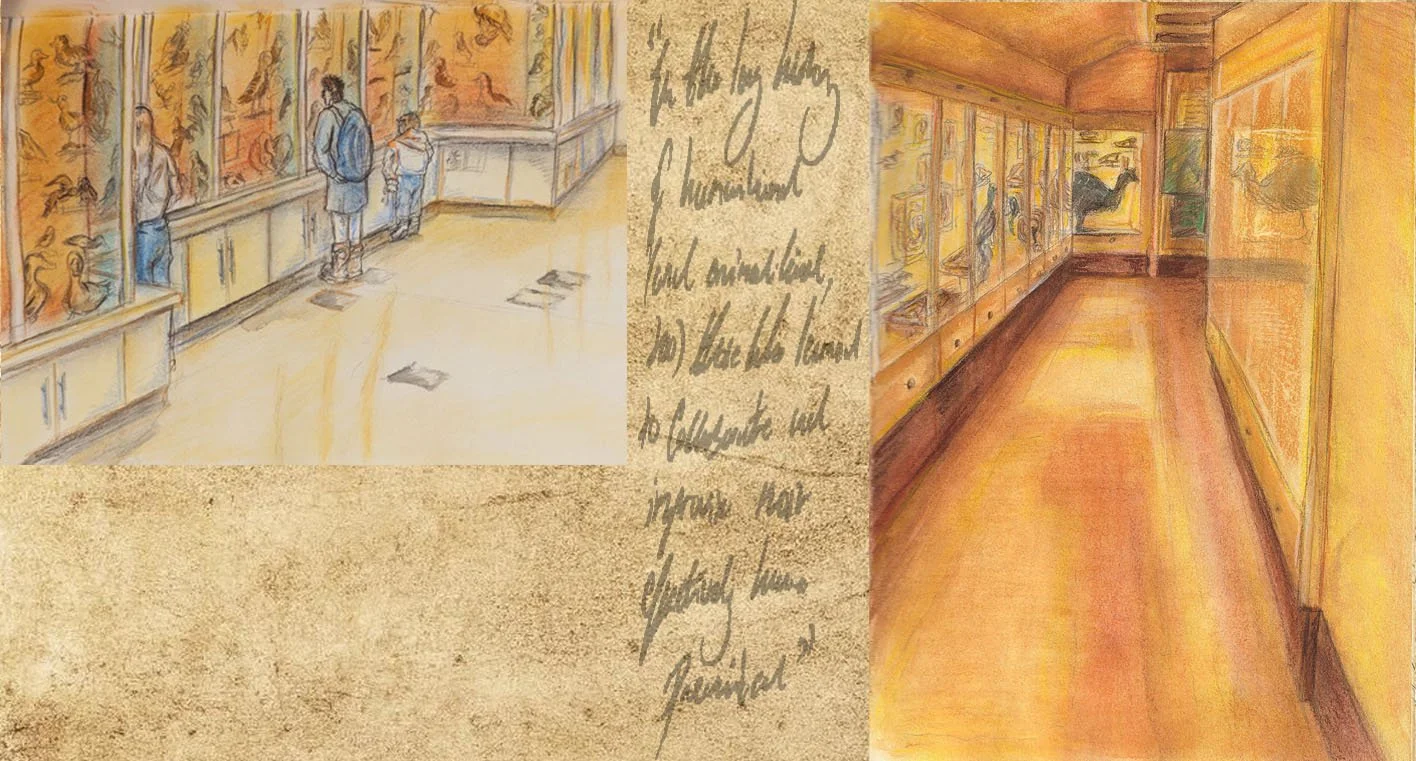 "In the long history
of humankind
(and animal kind,
too) those who learned
to collaborate and
improvise most
effectively have
prevailed"